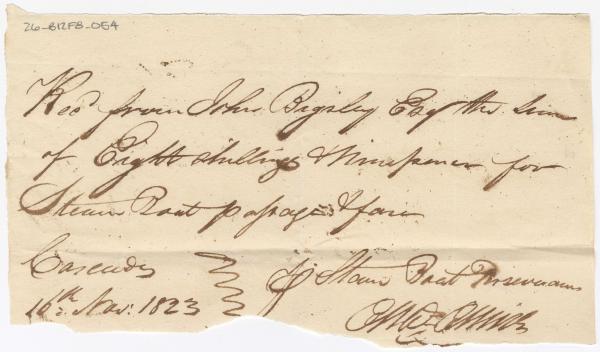 26-B12F8-054
Recd from John Bigsby Esqr the Sum
of Eight shillings & ninepence for
Steam Boat passage & fare
Cascades
16th Nov: 1823
Steam Boat Perseverance